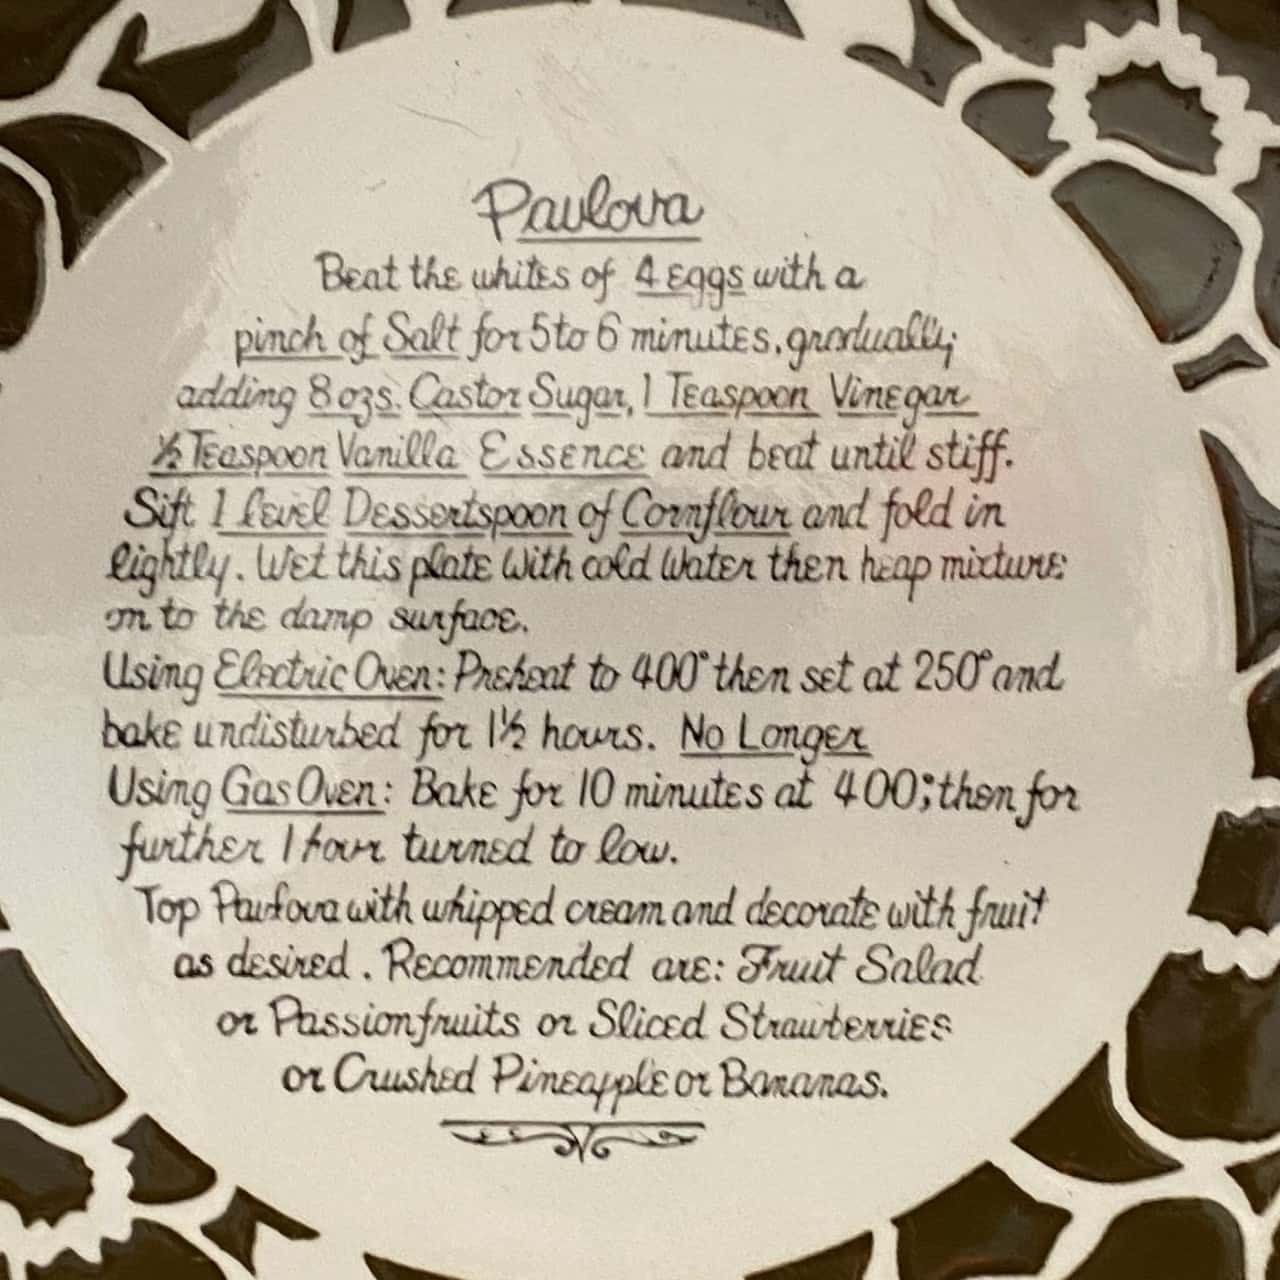 Pavlova
Beat the whites of 4 Eggs with a
pinch of Salt for 5 to 6 minutes, gradually,
adding 8 ozs. Castor Sugar, 1 Teaspoon Vinegar
½ Teaspoon Vanilla Essence and beat until stiff.
Sift 1 level Dessertspoon of Cornflour and fold in
lightly. Wet this plate With cold Water then heap mixture
on to the damp surface.
Using Electric Oven: Preheat to 400° then set at 250° and
bake undisturbed for 1½ hours. No Longer
Using Gas Oven: Bake for 10 minutes at 400°; then for
further 1 hour turned to low.
Top Pavlova with whipped cream and decorate with fruit
as desired. Recommended are: Fruit Salad
or Passionfruits or Sliced Strawberries
or Crushed Pineapple or Bananas.